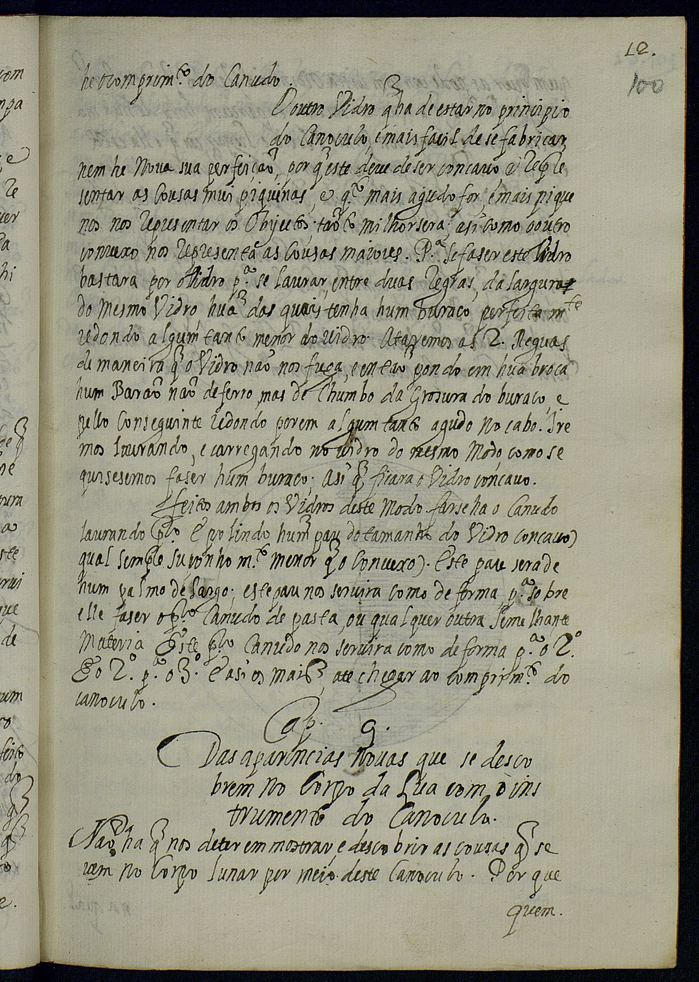 12.
100
he o comprim.to do Canudo.
O outro Vidro q̃ ha de estar no principio
do Canoculo, é mais facil de se fabricar,
nem he Nova sua perfeição, porq̃ este deve de ser concavo e repre
sentar as Cousas mui piquinas, e q.to mais agudo for, e mais pique
nos nos representar os Objectos tanto milhor sera: asi como o outro
convexo nos representa as Cousas maiores. P.a se faser este Vidro
bastara por o Vidro p.a se laurar, entre duas regras, da largura
do mesmo Vidro huã das quais tenha hum buraco perfeitam.te
redondo algum tanto menor do vidro. Ataremos as 2. Reguas
de maneira q̃ o Vidro não nos fuga, e entao pondo em huã broca
hum Barão não de ferro, mas de Chumbo da grosura do buraco e
pello conseguinte redondo porem algum tanto agudo no cabo. Ire
mos laurando, e carregando no vidro do mesmo Modo como se
quisesemos faser hum buraco; asi q̃ ficara o Vidro concavo.
Feitos ambos os Vidros deste Modo farseha o Canudo
laurando p.ro e polindo hum pau do tamanho do Vidro concavo
qual sempre suponho m.to menor q̃ o convexo). Este pau sera de
hum palmo de largo; este pau nos servira como de forma p.a sobre
elle faser o p.ro Canudo de pasta, ou qualquer outra semelhante
Materia. Este p.ro Canudo nos servira como de forma p.a o 2.o
E o 2.o p.a o 3.o E asi os mais, ate chegar ao comprim.to do
canoculo.
Cap. 9.
Das aparencias novas que se desco
brem no Corpo da Lua com o ins
trumento do Canoculo.
Não ha q̃ nos deter em mostrar e descobrir as cousas q̃ se
vem no Corpo lunar por meio deste Canoculo. Porque
quem.